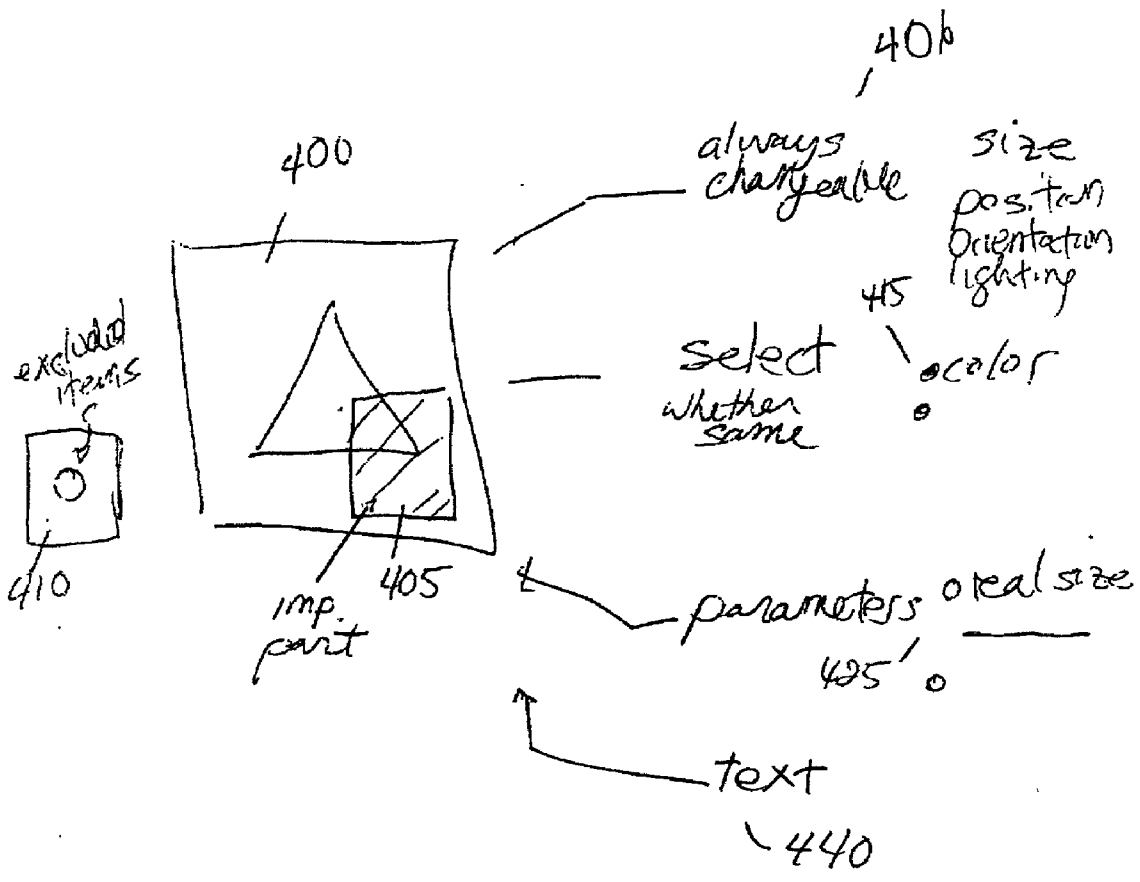 406
400
always
changeable
size
position
orientation
lighting
excluded
items
415
select
whether
same
color
410
imp.
part
405
parameters
real size
425
text
440